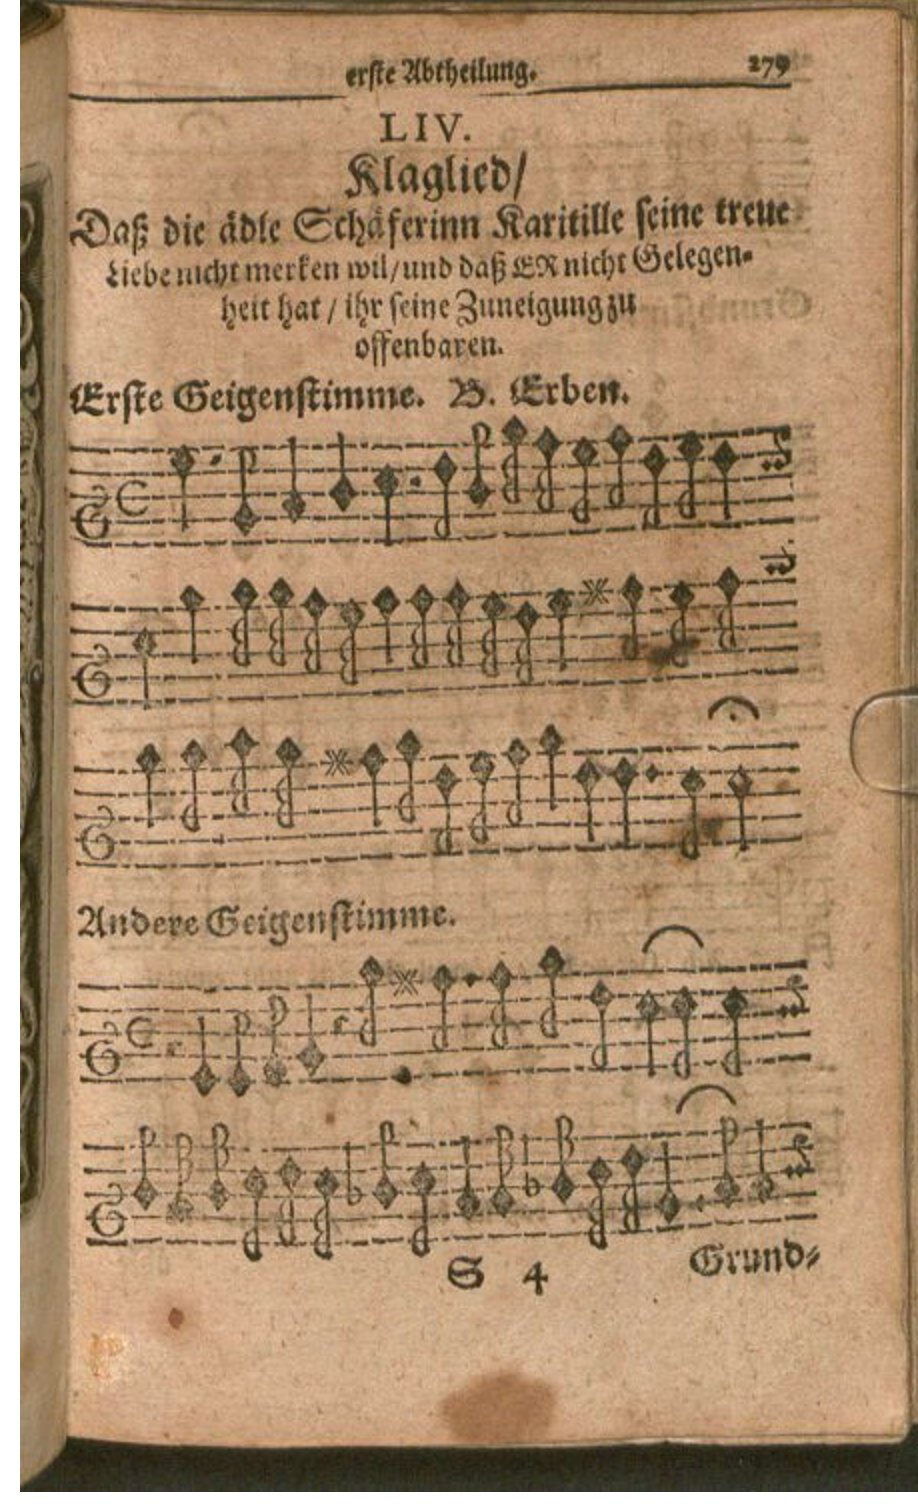 erste Abtheilung. 279
LIV.
Klaglied/
Daß die ädle Schäferinn Karitille seine treue
Liebe nicht merken wil/und daß ER nicht Gelegen-
heit hat / ihr seine Zuneigung zu
offenbaren.
Erste Geigenstimme. B. Erben.
Andere Geigenstimme.
S 4 Grund-